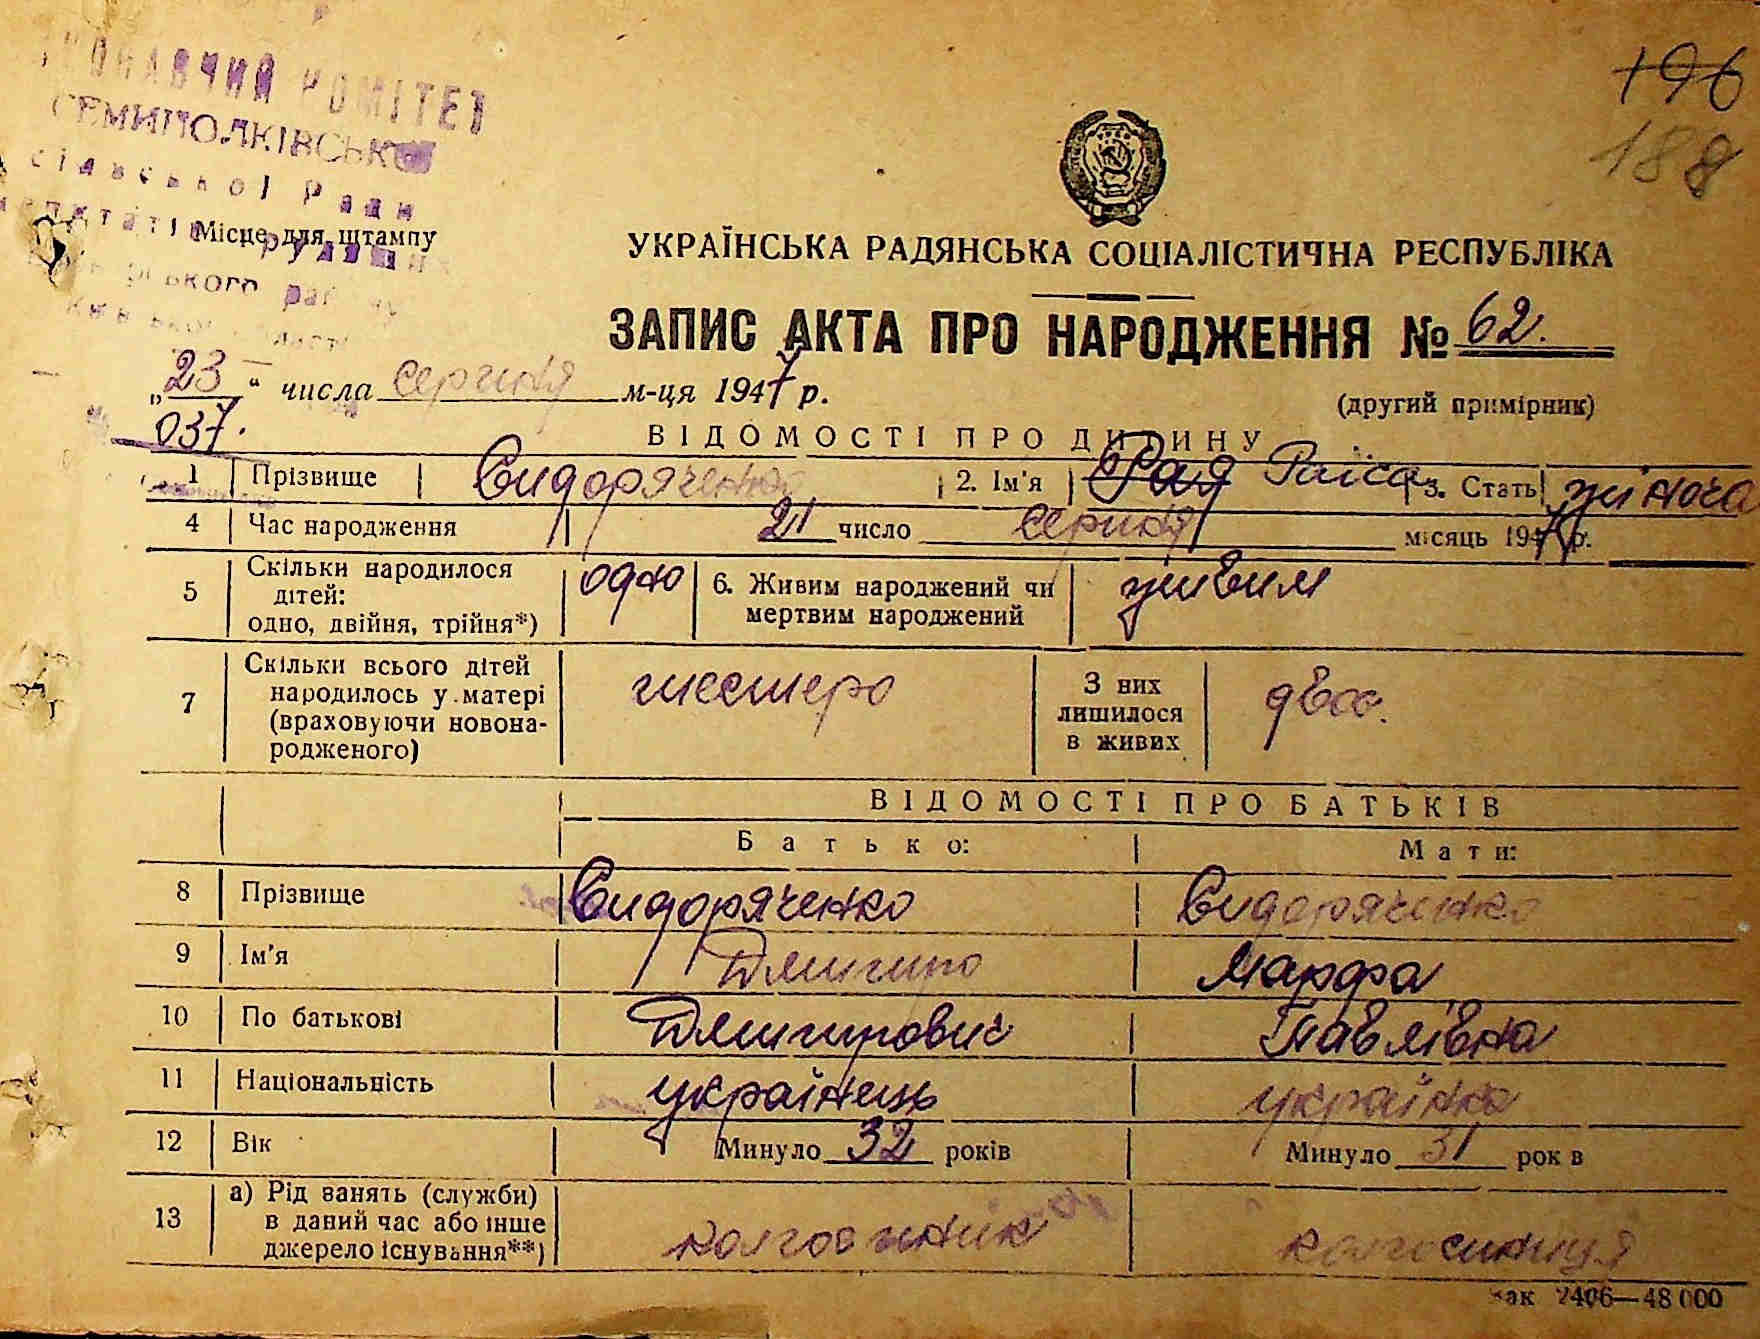 196
188
КОНАВЧИЙ КОМІТЕТ
СЕМИПОЛКІВСЬКО
сільської Ради
Місце для штампу
УКРАЇНСЬКА РАДЯНСЬКА СОЦІАЛІСТИЧНА РЕСПУБЛІКА
ЗАПИС АКТА ПРО НАРОДЖЕННЯ № 62.
„23“ числа серпня м-ця 1947 р.
(другий примірник)
037.
ВІДОМОСТІ ПРО ДИТИНУ
1 Прізвище Сидоряченко 2. Ім'я Рая Раїса 3. Стать жіноча
4 Час народження 21 число серпня місяць 1947 р.
5 Скільки народилося дітей: одно, двійня, трійня*) одно 6. Живим народжений чи мертвим народжений живим
7 Скільки всього дітей народилось у матері (враховуючи новонародженого) шестеро З них лишилося в живих двоє.
ВІДОМОСТІ ПРО БАТЬКІВ
Батько: Мати:
8 Прізвище Сидоряченко Сидоряченко
9 Ім'я Дмитро Марфа
10 По батькові Дмитрович Павлівна
11 Національність українець українка
12 Вік Минуло 32 років Минуло 31 рок в
13 а) Рід занять (служби) в даний час або інше джерело існування**) колгоспник колгоспниця
Зак 2406—48 000